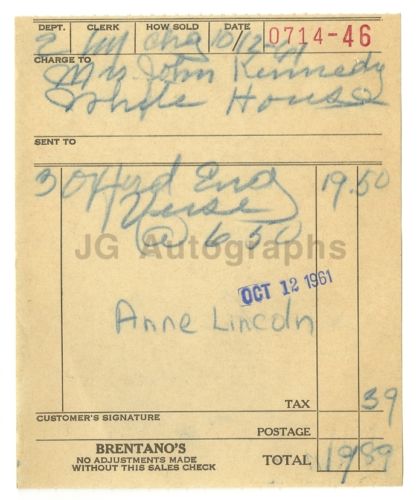 DEPT. CLERK HOW SOLD DATE
2 chg 10/12-61 0714-46
CHARGE TO
Mrs John Kennedy
White House
SENT TO
3 Oxfd Eng 19.50
Verse
@ 6 50
JG Autographs
OCT 12 1961
Anne Lincoln
TAX 39
CUSTOMER'S SIGNATURE
POSTAGE
BRENTANO'S
NO ADJUSTMENTS MADE
WITHOUT THIS SALES CHECK
TOTAL 1989